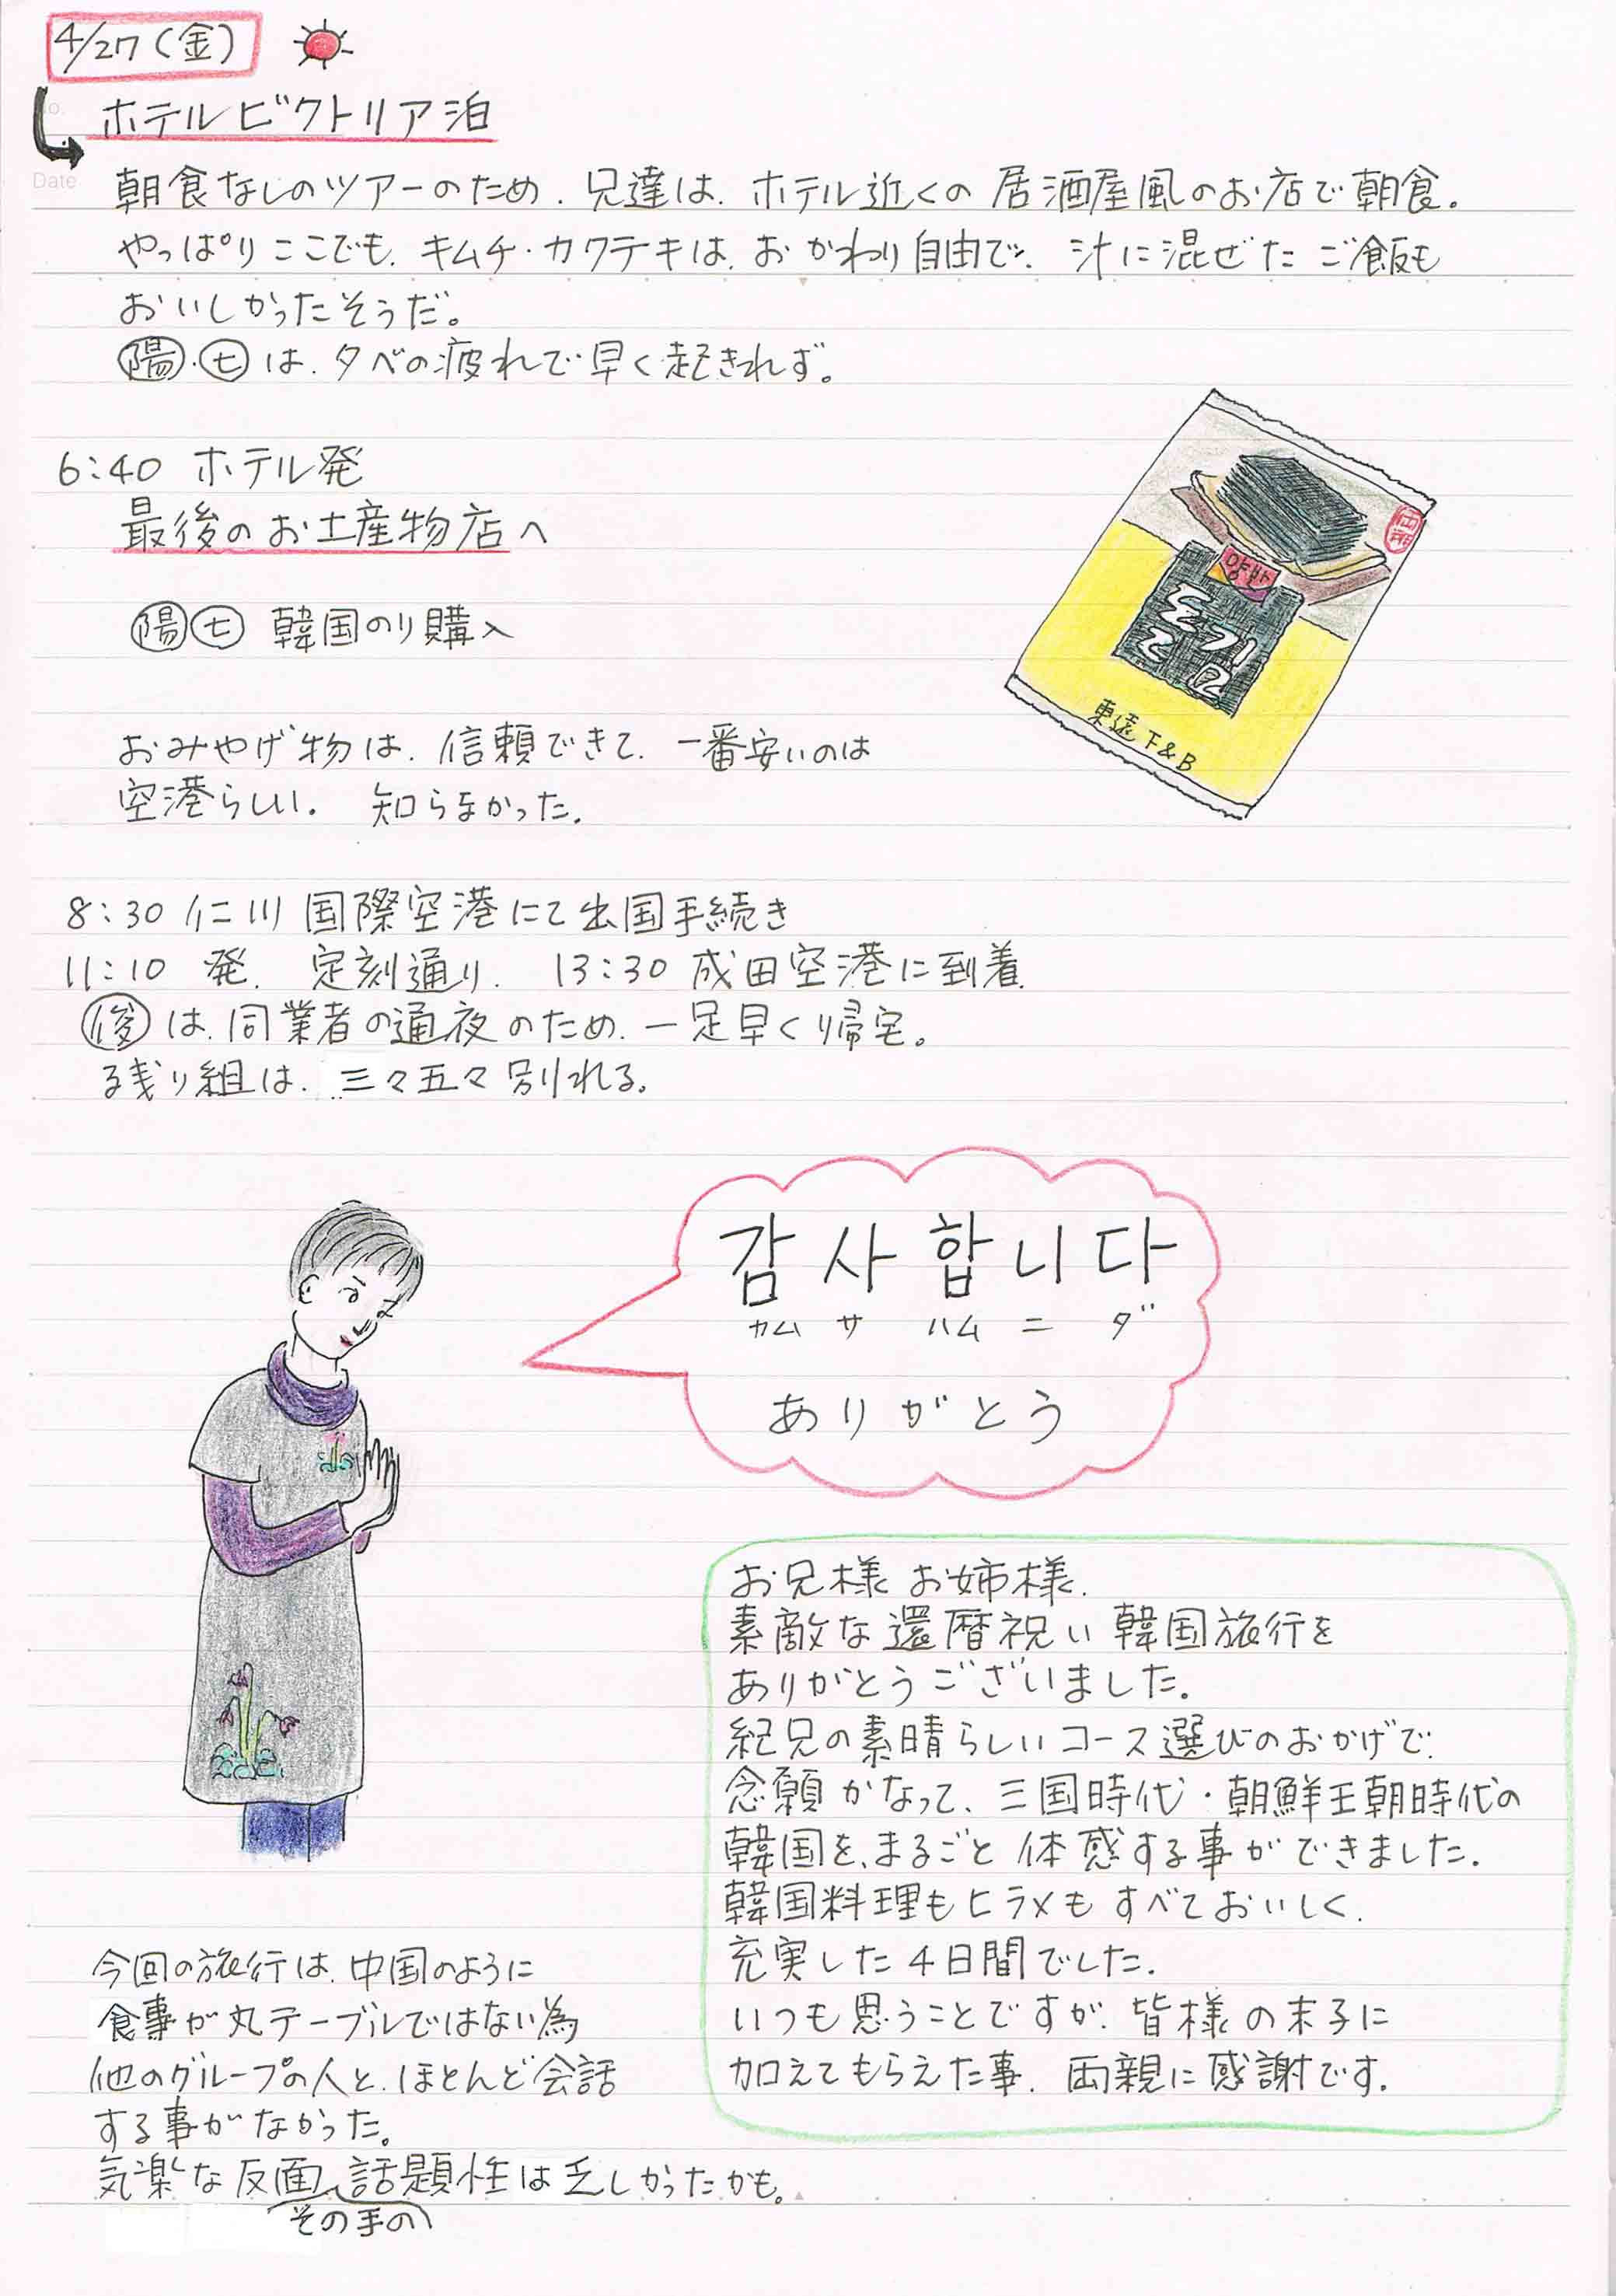 4/27(金)
ホテルビクトリア泊
Date
朝食なしのツアーのため、兄達は、ホテル近くの居酒屋風のお店で朝食。
やっぱりここでも、キムチ・カクテキは、おかわり自由で、汁に混ぜたご飯も
おいしかったそうだ。
陽・七は、夕べの疲れで早く起きれず。
6:40 ホテル発
最後のお土産物店へ
陽 七 韓国のり購入
양반
돌기
김
東遠 F&B
おみやげ物は、信頼できて、一番安いのは
空港らしい。 知らなかった。
8:30 仁川国際空港にて出国手続き
11:10 発、 定刻通り、 13:30 成田空港に到着
俊は、同業者の通夜のため、一足早く帰宅。
残り組は、三々五々別れる。
감사합니다
カム サ ハム ニ ダ
ありがとう
お兄様 お姉様、
素敵な還暦祝い韓国旅行を
ありがとうございました。
紀兄の素晴らしいコース選びのおかげで、
念願かなって、三国時代・朝鮮王朝時代の
韓国を、まるごと体感する事ができました。
韓国料理もヒラメもすべておいしく、
充実した4日間でした。
いつも思うことですが、皆様の末子に
加えてもらえた事、両親に感謝です。
今回の旅行は、中国のように
食事が丸テーブルではない為
他のグループの人と、ほとんど会話
する事がなかった。
気楽な反面、話題性は乏しかったかも。
その手の